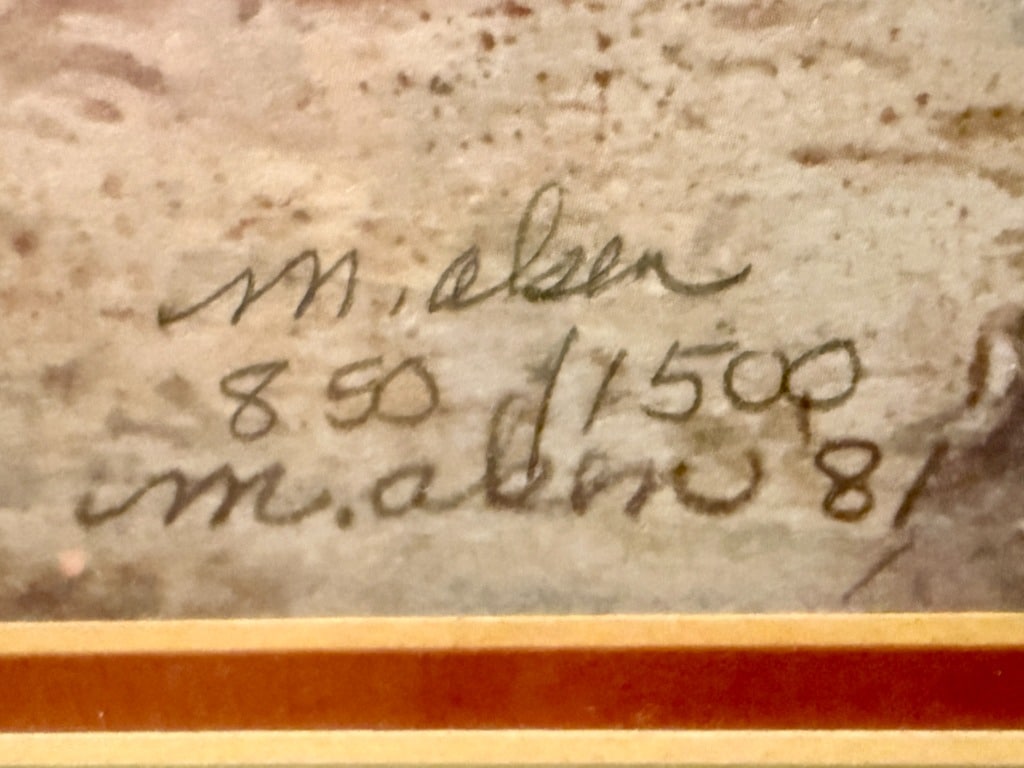 m. alsen
850/1500
m. alsen 81